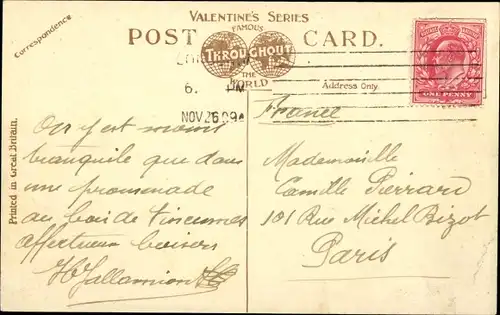 VALENTINE'S SERIES
FAMOUS
POST CARD.
THROUGHOUT
THE
WORLD
Correspondence
Address Only.
ONE PENNY
6. PM
NOV 26 09
Printed in Great Britain.
France
On y est moins
tranquile que dans
une promenade
au bois de Vincennes
affectueux baisers
Mademoiselle
Camille Pierrard
181 Rue Michel Bizot
Paris